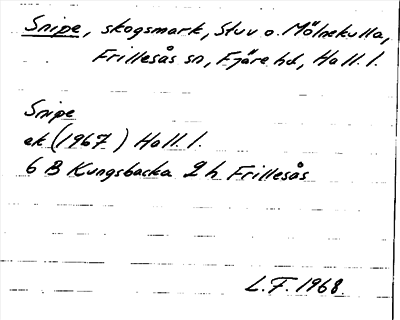 Snipe, skogsmark, Stuv o. Mölnekulla,
Frillesås sn, Fjäre hd, Hall. l.
Snipe
ek (1967) Hall. l.
6 B Kungsbacka 2 h Frillesås
L.F. 1968.